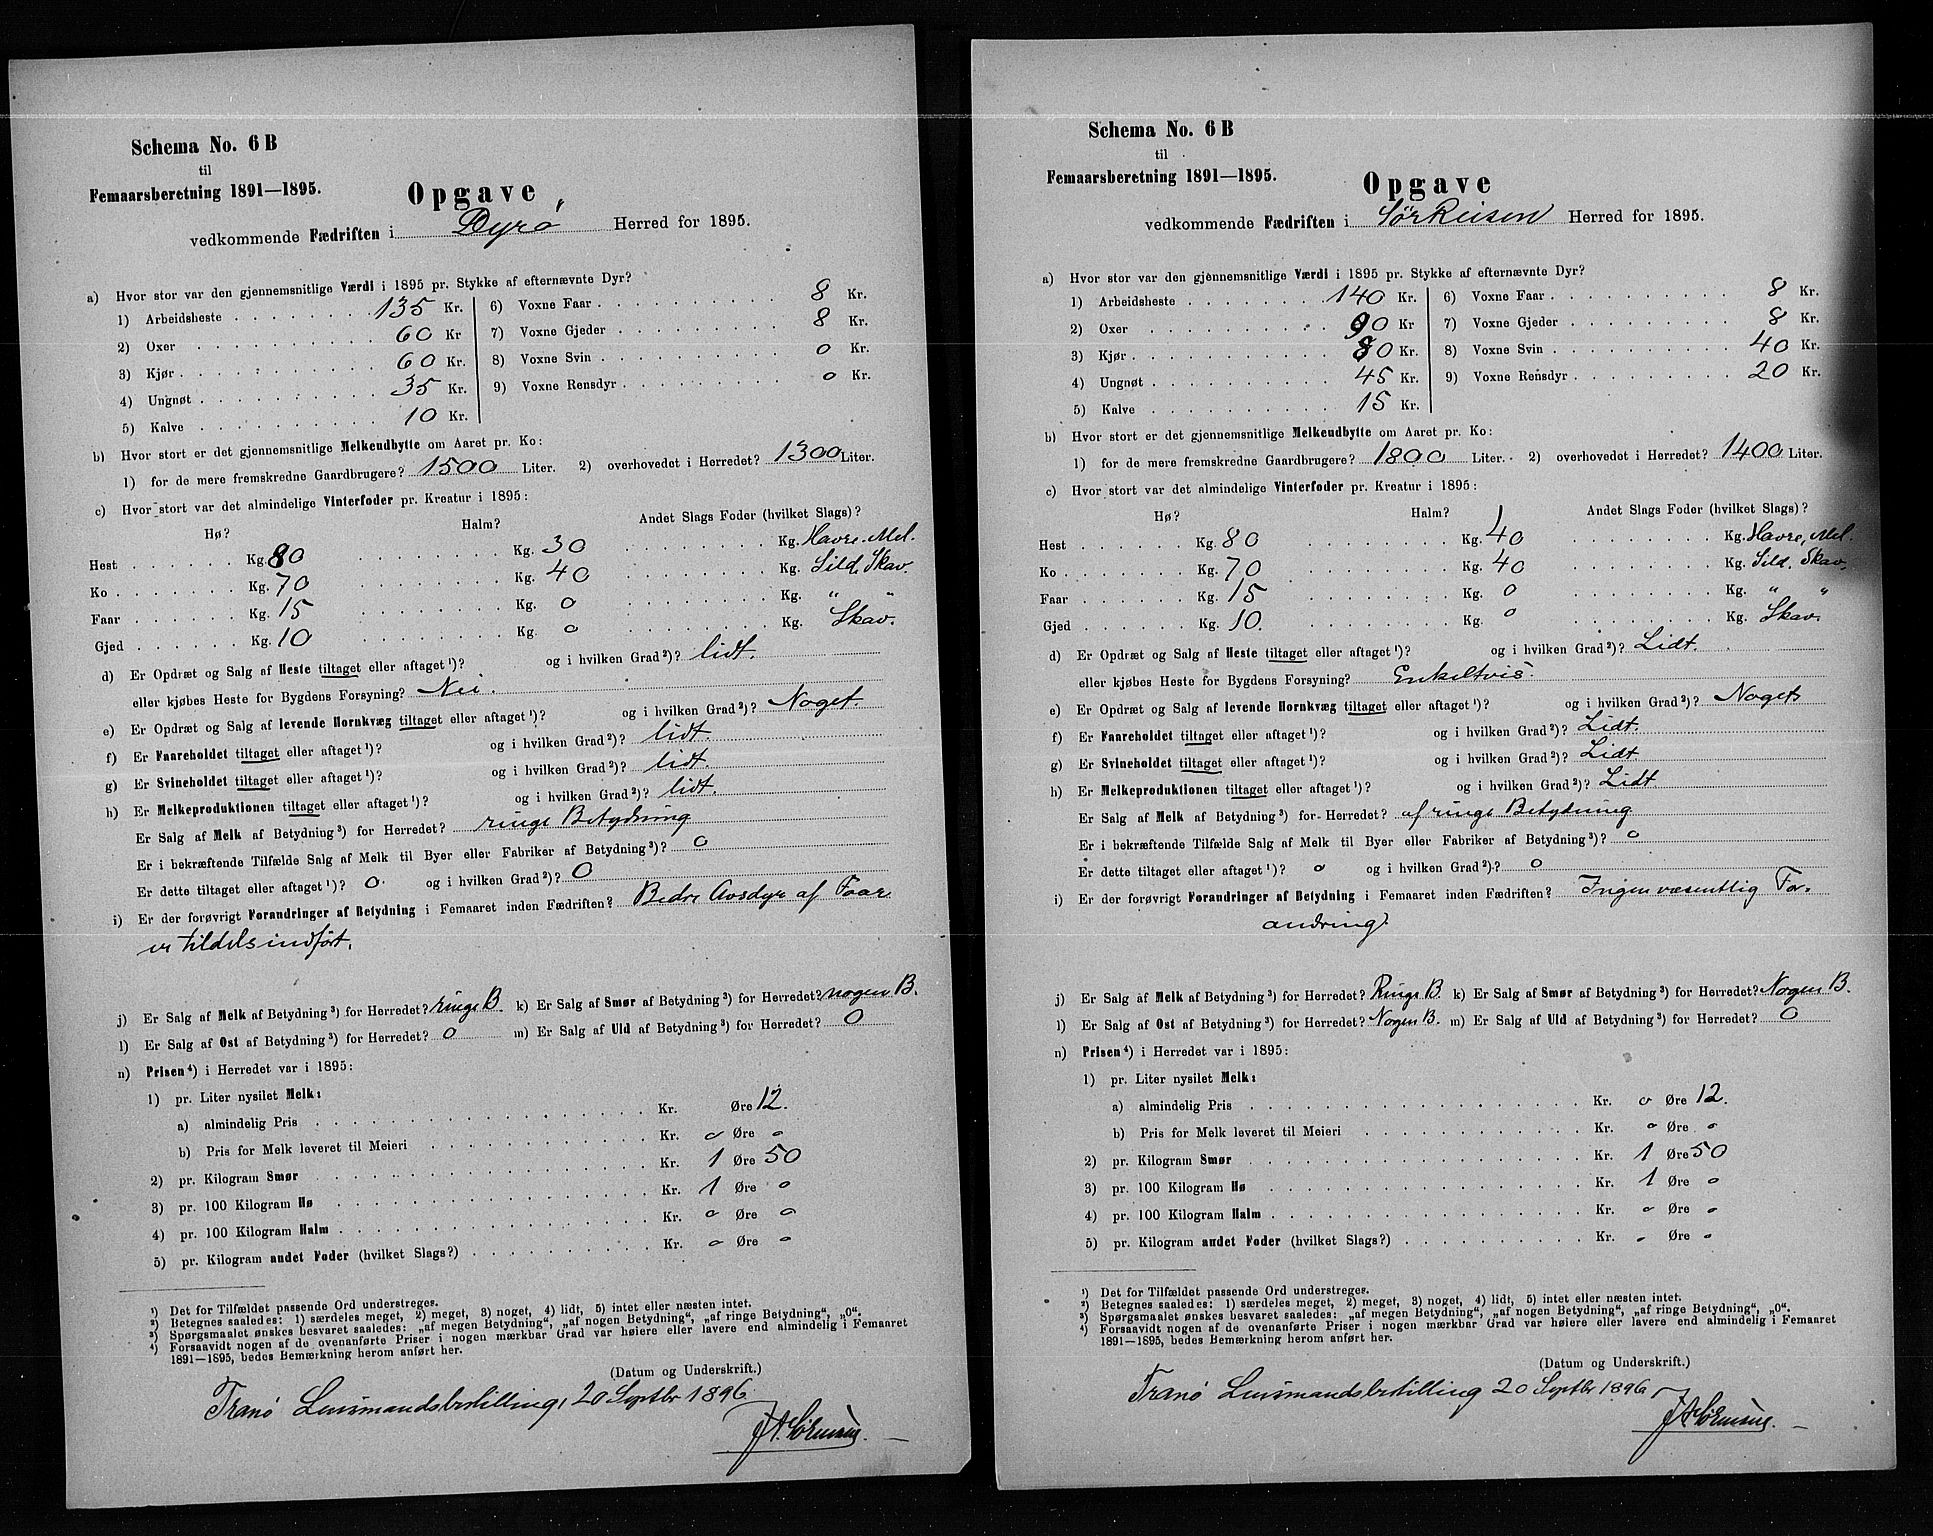 Schema No. 6 B
til
Femaarsberetning 1891—1895.
Opgave
vedkommende Fædriften i Dyrø Herred for 1895.
a) Hvor stor var den gjennemsnitlige Værdi i 1895 pr. Stykke af efternævnte Dyr?
1) Arbeidsheste 135 Kr. 6) Voxne Faar 8 Kr.
2) Oxer 60 Kr 7) Voxne Gjeder 8 Kr.
3) Kjør 60 Kr. 8) Voxne Svin 0 Kr.
4) Ungnøt 35 Kr. 9) Voxne Rensdyr 0 Kr.
5) Kalve 10 Kr.
b) Hvor stort er det gjennemsnitlige Melkeudbytte om Aaret pr. Ko:
1) for de mere fremskredne Gaardbrugere? 1500 Liter. 2) overhovedet i Herredet? 1300 Liter.
c) Hvor stort var det almindelige Vinterfoder pr. Kreatur i 1895:
Hø? Halm? Andet Slags Foder (hvilket Slags)?
Hest Kg. 80 Kg. 30 Kg. Havre. Mel.
Ko Kg. 70 Kg. 40 Kg. Sild, Skav.
Faar Kg. 15 Kg. 0 Kg. " "
Gjed Kg. 10 Kg. 0 Kg. Skav.
d) Er Opdræt og Salg af Heste tiltaget eller aftaget¹)? og i hvilken Grad²)? lidt.
eller kjøbes Heste for Bygdens Forsyning? Nei.
e) Er Opdræt og Salg af levende Hornkvæg tiltaget eller aftaget¹)? og i hvilken Grad²)? Noget.
f) Er Faareholdet tiltaget eller aftaget¹)? og i hvilken Grad²)? lidt.
g) Er Svineholdet tiltaget eller aftaget¹)? og i hvilken Grad²)? lidt.
h) Er Melkeproduktionen tiltaget eller aftaget¹)? og i hvilken Grad²)? lidt.
Er Salg af Melk af Betydning³) for Herredet? ringe Betydning
Er i bekræftende Tilfælde Salg af Melk til Byer eller Fabriker af Betydning³)? 0
Er dette tiltaget eller aftaget¹)? 0. og i hvilken Grad²)? 0
i) Er der forøvrigt Forandringer af Betydning i Femaaret inden Fædriften? Bedre Avsdyr af Faar
er tildels indført.
j) Er Salg af Melk af Betydning³) for Herredet? ringe B. k) Er Salg af Smør af Betydning³) for Herredet? nogen B.
l) Er Salg af Ost af Betydning³) for Herredet? 0 m) Er Salg af Uld af Betydning³) for Herredet? 0
n) Prisen⁴) i Herredet var i 1895:
1) pr. Liter nysilet Melk:
a) almindelig Pris Kr. Øre 12.
b) Pris for Melk leveret til Meieri Kr. 0 Øre 0
2) pr. Kilogram Smør Kr. 1 Øre 50
3) pr. 100 Kilogram Hø Kr. 1 Øre 0
4) pr. 100 Kilogram Halm Kr. 0 Øre 0
5) pr. Kilogram andet Foder (hvilket Slags?) Kr. 0 Øre 0
¹) Det for Tilfældet passende Ord understreges.
²) Betegnes saaledes: 1) særdeles meget, 2) meget, 3) noget, 4) lidt, 5) intet eller næsten intet.
³) Spørgsmaalet ønskes besvaret saaledes: „af megen Betydning“, „af nogen Betydning“, „af ringe Betydning“, „0“.
⁴) Forsaavidt nogen af de ovenanførte Priser i nogen mærkbar Grad var høiere eller lavere end almindelig i Femaaret
1891—1895, bedes Bemærkning herom anført her.
(Datum og Underskrift.)
Tranø Lensmandsbestilling, 20 Septbr 1896.
J A Sørensen
Schema No. 6 B
til
Femaarsberetning 1891—1895.
Opgave
vedkommende Fædriften i Sørreisen Herred for 1895.
a) Hvor stor var den gjennemsnitlige Værdi i 1895 pr. Stykke af efternævnte Dyr?
1) Arbeidsheste 140 Kr. 6) Voxne Faar 8 Kr.
2) Oxer 90 Kr 7) Voxne Gjeder 8 Kr.
3) Kjør 80 Kr. 8) Voxne Svin 40 Kr.
4) Ungnøt 45 Kr. 9) Voxne Rensdyr 20 Kr.
5) Kalve 15 Kr.
b) Hvor stort er det gjennemsnitlige Melkeudbytte om Aaret pr. Ko:
1) for de mere fremskredne Gaardbrugere? 1800 Liter. 2) overhovedet i Herredet? 1400 Liter.
c) Hvor stort var det almindelige Vinterfoder pr. Kreatur i 1895:
Hø? Halm? Andet Slags Foder (hvilket Slags)?
Hest Kg. 80 Kg. 40 Kg. Havre, Mel.
Ko Kg. 70 Kg. 40 Kg. Sild, Skav.
Faar Kg. 15 Kg. 0 Kg. " "
Gjed Kg. 10. Kg. 0 Kg. Skav.
d) Er Opdræt og Salg af Heste tiltaget eller aftaget¹)? og i hvilken Grad²)? Lidt.
eller kjøbes Heste for Bygdens Forsyning? Enkeltvis.
e) Er Opdræt og Salg af levende Hornkvæg tiltaget eller aftaget¹)? og i hvilken Grad²)? Noget
f) Er Faareholdet tiltaget eller aftaget¹)? og i hvilken Grad²)? Lidt.
g) Er Svineholdet tiltaget eller aftaget¹)? og i hvilken Grad²)? Lidt
h) Er Melkeproduktionen tiltaget eller aftaget¹)? og i hvilken Grad²)? Lidt.
Er Salg af Melk af Betydning³) for Herredet? af ringe Betydning
Er i bekræftende Tilfælde Salg af Melk til Byer eller Fabriker af Betydning³)? 0
Er dette tiltaget eller aftaget¹)? 0 og i hvilken Grad²)? 0
i) Er der forøvrigt Forandringer af Betydning i Femaaret inden Fædriften? Ingen væsentlig For-
andring.
j) Er Salg af Melk af Betydning³) for Herredet? Ringe B. k) Er Salg af Smør af Betydning³) for Herredet? Nogen B.
l) Er Salg af Ost af Betydning³) for Herredet? Nogen B. m) Er Salg af Uld af Betydning³) for Herredet? 0
n) Prisen⁴) i Herredet var i 1895:
1) pr. Liter nysilet Melk:
a) almindelig Pris Kr. 0 Øre 12.
b) Pris for Melk leveret til Meieri Kr. 0 Øre 0
2) pr. Kilogram Smør Kr. 1 Øre 50
3) pr. 100 Kilogram Hø Kr. 1 Øre 0
4) pr. 100 Kilogram Halm Kr. 0 Øre 0
5) pr. Kilogram andet Foder (hvilket Slags?) Kr. 0 Øre 0
¹) Det for Tilfældet passende Ord understreges.
²) Betegnes saaledes: 1) særdeles meget, 2) meget, 3) noget, 4) lidt, 5) intet eller næsten intet.
³) Spørgsmaalet ønskes besvaret saaledes: „af megen Betydning“, „af nogen Betydning“, „af ringe Betydning“, „0“.
⁴) Forsaavidt nogen af de ovenanførte Priser i nogen mærkbar Grad var høiere eller lavere end almindelig i Femaaret
1891—1895, bedes Bemærkning herom anført her.
(Datum og Underskrift.)
Tranø Lensmandsbestilling 20 Septbr 1896
J A Sørensen